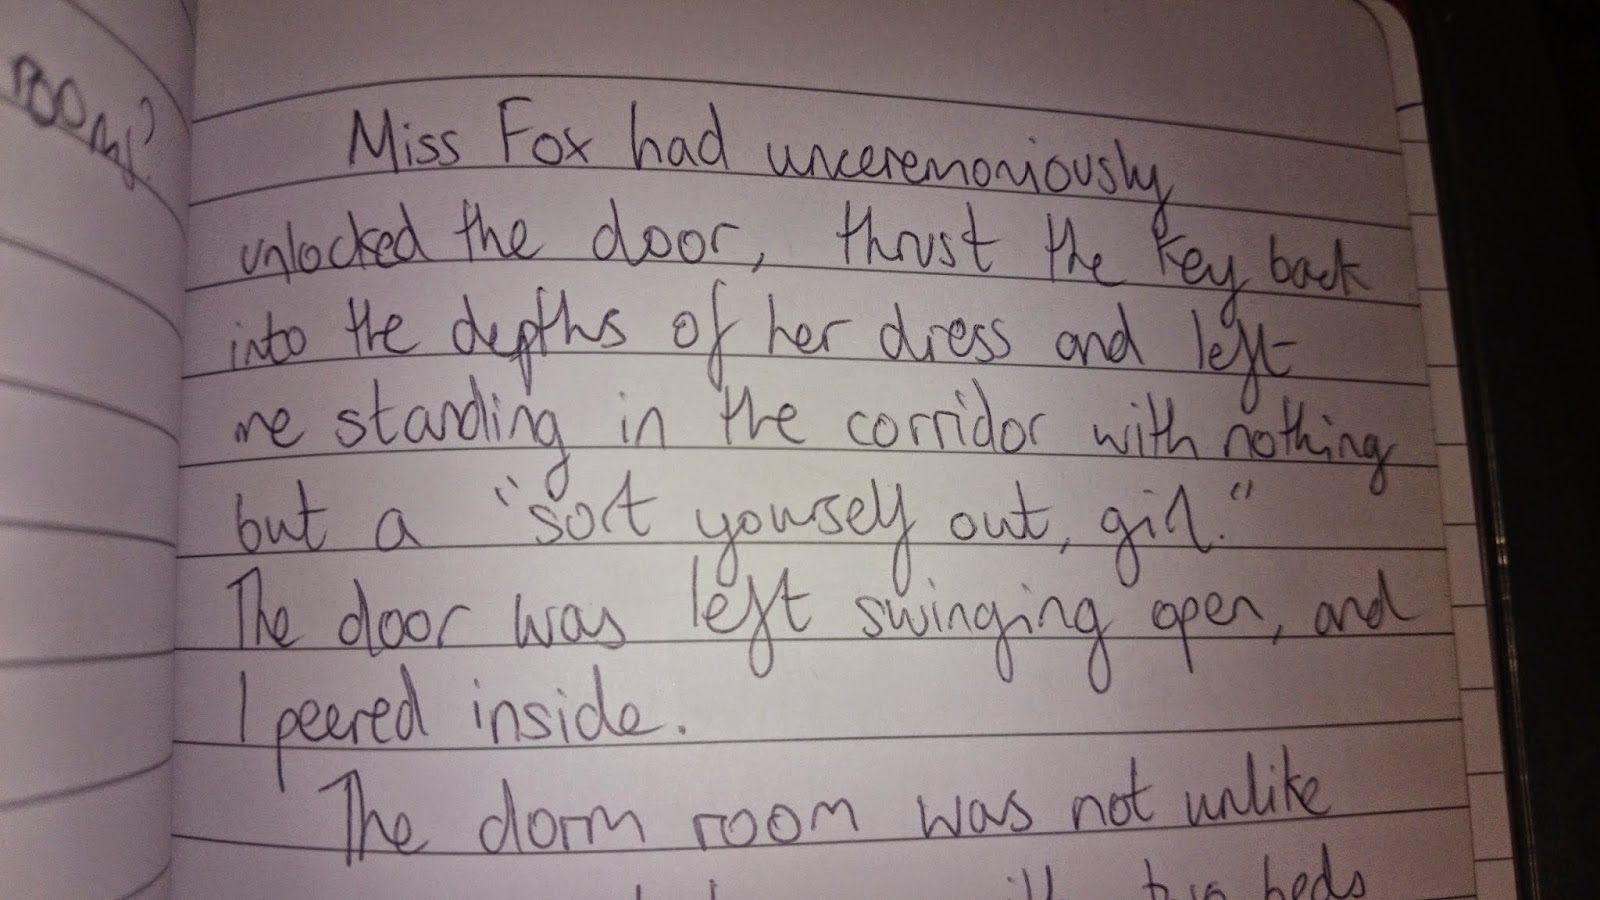 room?
Miss Fox had unceremoniously
unlocked the door, thrust the key back
into the depths of her dress and left
me standing in the corridor with nothing
but a "sort yourself out, girl."
The door was left swinging open, and
I peered inside.
The dorm room was not unlike
beds